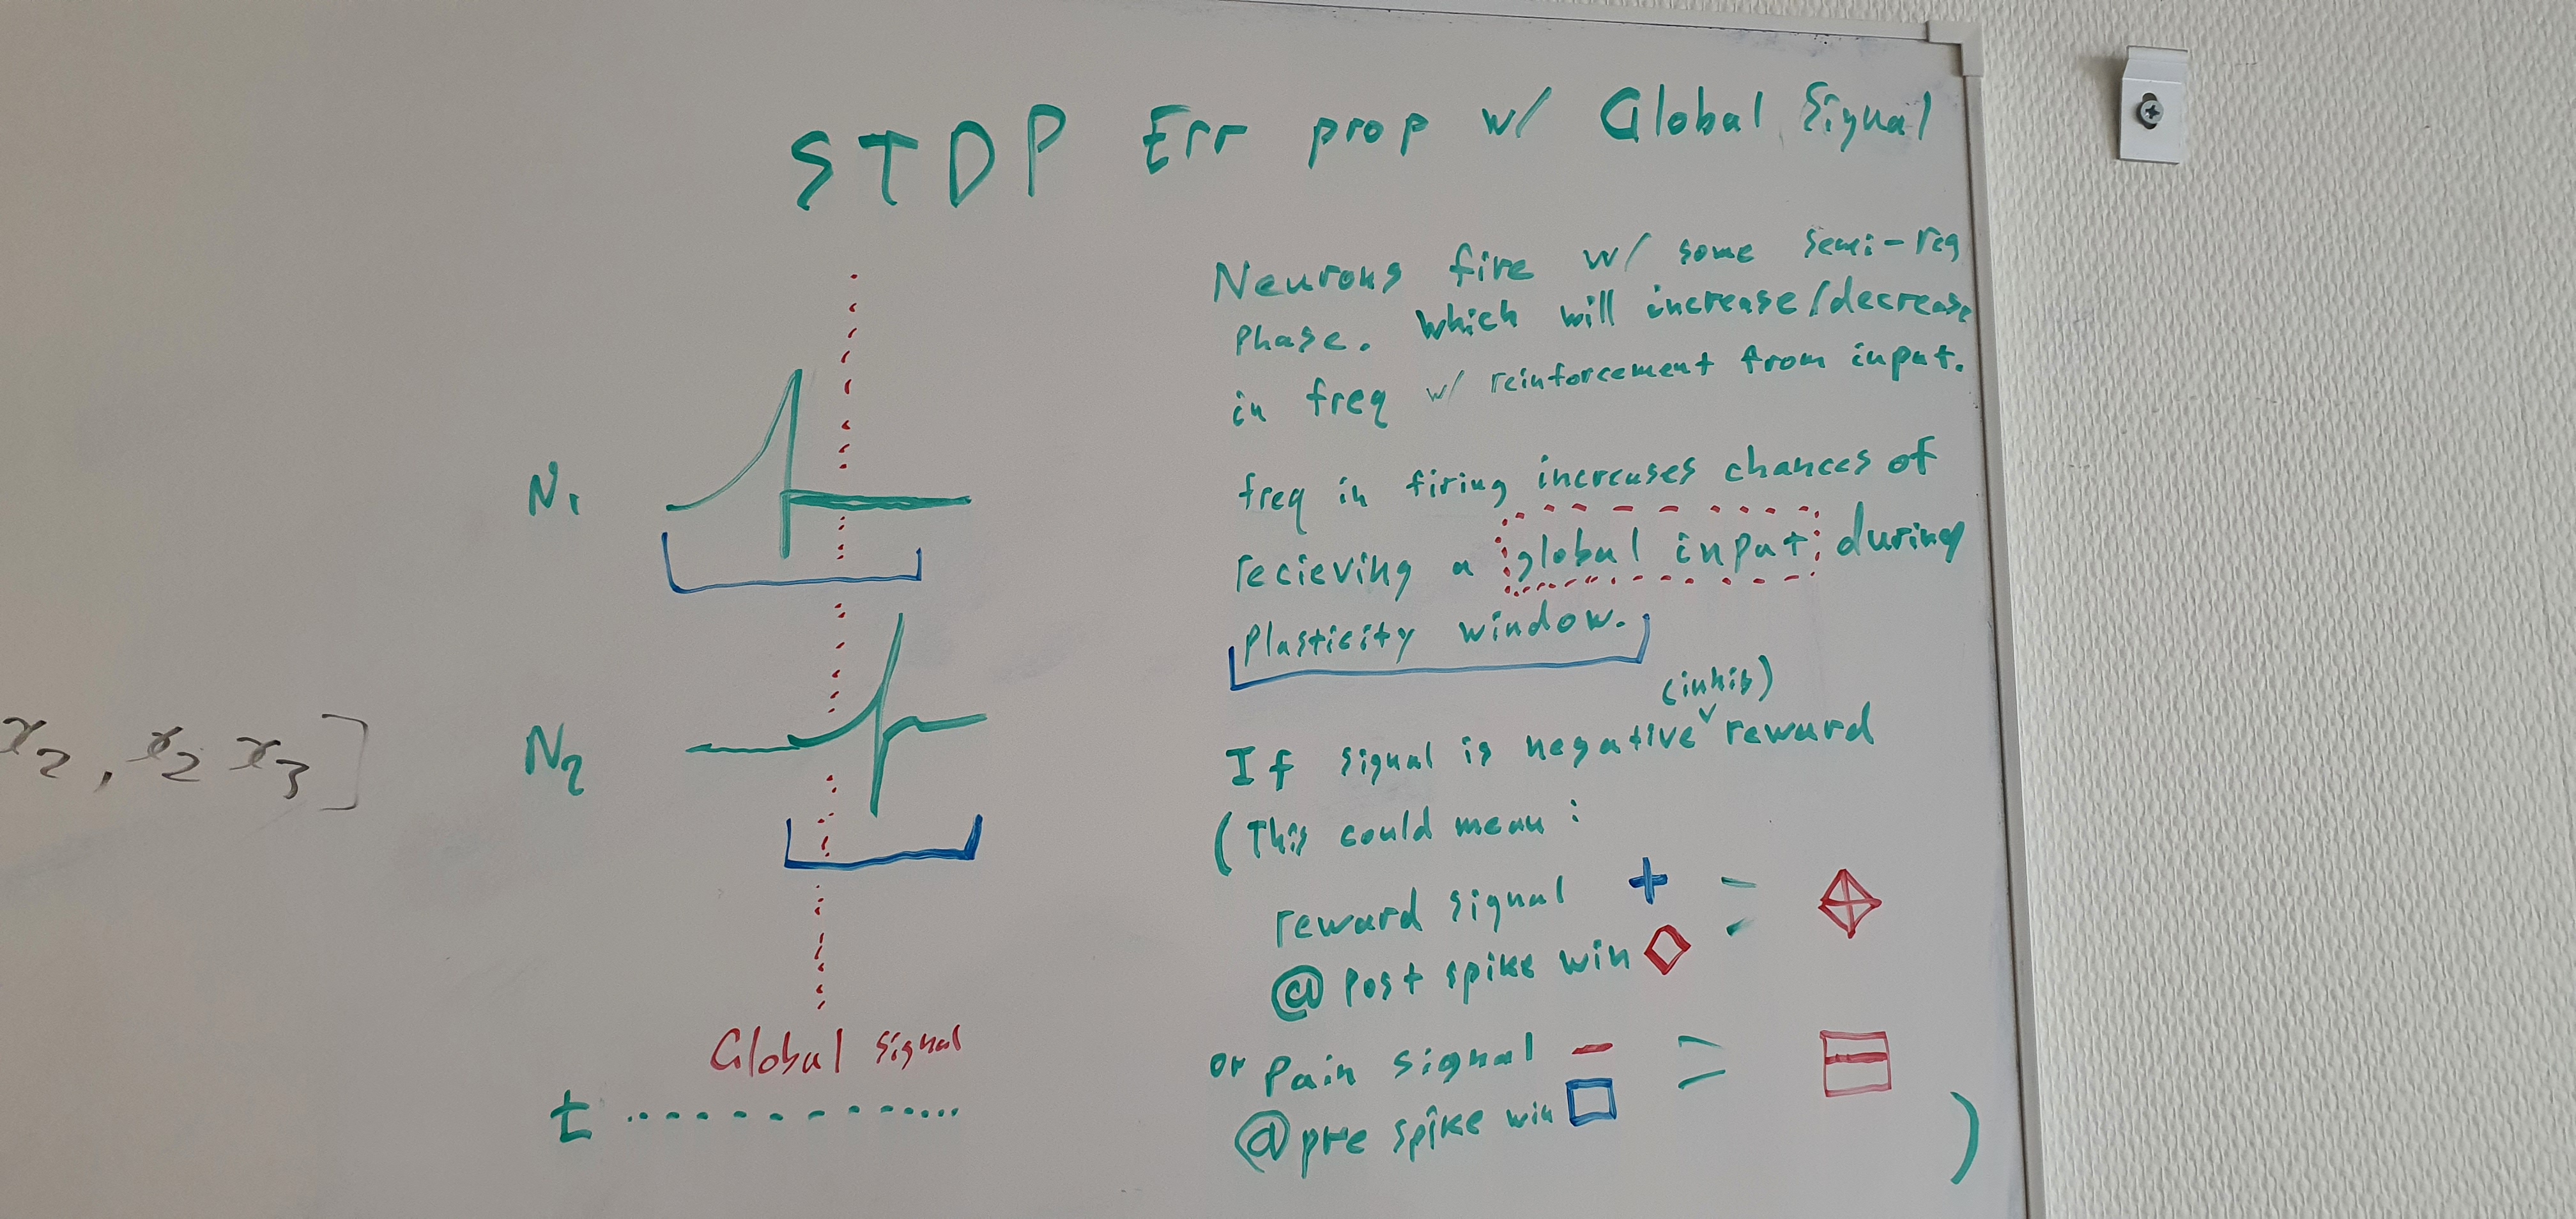 STDP Err prop w/ Global Signal
Neurons fire w/ some semi-reg
phase. Which will increase/decrease
in freq w/ reinforcement from input.
N1
freq in firing increases chances of
recieving a global input during
Plasticity window.
(inhib)
x2, x2 x3]
N2
If signal is negative ˅ reward
(This could mean:
reward signal + =
@ Post spike win
Global signal
or Pain signal - =
t
@ pre spike win
)